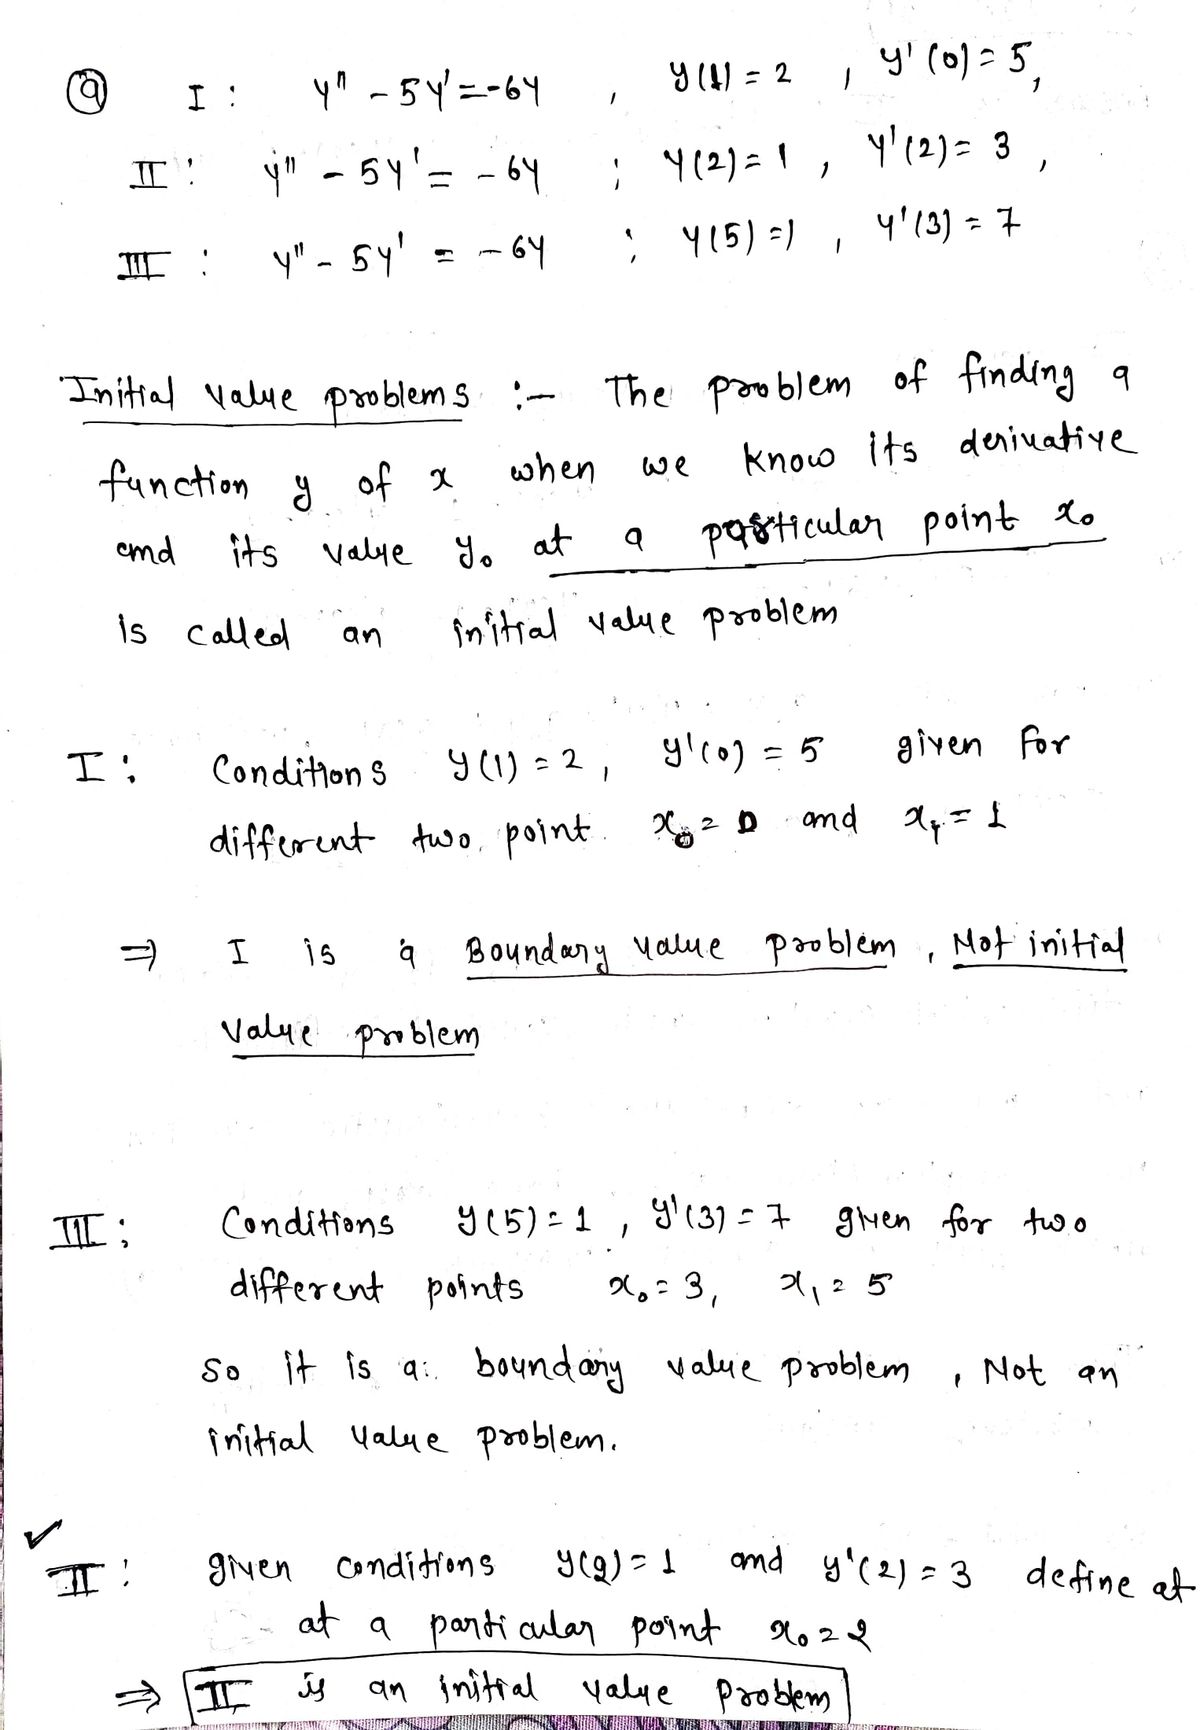 (a) I : y" - 5y' = -6y , y(1) = 2 , y'(0) = 5,
II : y" - 5y' = -6y ; y(2) = 1 , y'(2) = 3 ,
III : y" - 5y' = -6y ; y(5) = 1 , y'(3) = 7
Initial value problems :- The problem of finding a
function y of x when we know its derivative
and its value y₀ at a particular point x₀
is called an initial value problem
I : Conditions y(1) = 2 , y'(0) = 5 given for
different two point x₀ = 0 and x₁ = 1
⇒ I is a Boundary value problem , Not initial
value problem
III : Conditions y(5) = 1 , y'(3) = 7 given for two
different points x₀ = 3, x₁ = 5
So it is a boundary value problem , Not an
initial value problem.
✓
II : given conditions y(2) = 1 and y'(2) = 3 define at
at a particular point x₀ = 2
⇒ II is an initial value problem